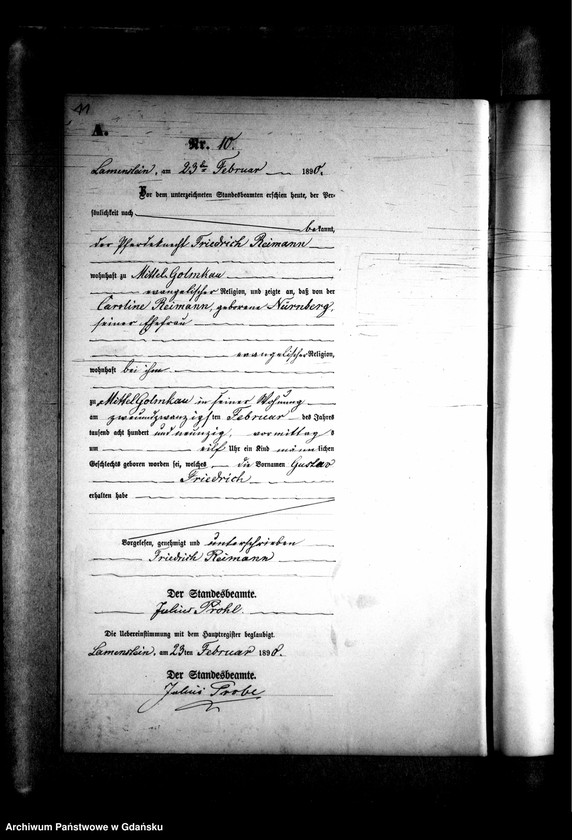 41
A.
Nr. 10.
Lamenstein, am 23ten Februar 1890.
Vor dem unterzeichneten Standesbeamten erschien heute, der Per-
sönlichkeit nach
bekannt,
der Pferdeknecht Friedrich Reimann
wohnhaft zu Mittel Golmkau
evangelischer Religion, und zeigte an, daß von der
Caroline Reimann, geborene Nürnberg,
seiner Ehefrau
evangelischer Religion,
wohnhaft bei ihm
zu Mittel Golmkau in seiner Wohnung
am zweiundzwanzigsten Februar des Jahres
tausend acht hundert und neunzig, vormittags
um eilf Uhr ein Kind männlichen
Geschlechts geboren worden sei, welches die Vornamen Gustav
Friedrich
erhalten habe
Vorgelesen, genehmigt und unterschrieben
Friedrich Reimann
Der Standesbeamte.
Julius
Die Uebereinstimmung mit dem Hauptregister beglaubigt.
Lamenstein, am 23ten Februar 1890.
Der Standesbeamte.
Julius
Archiwum Państwowe w Gdańsku